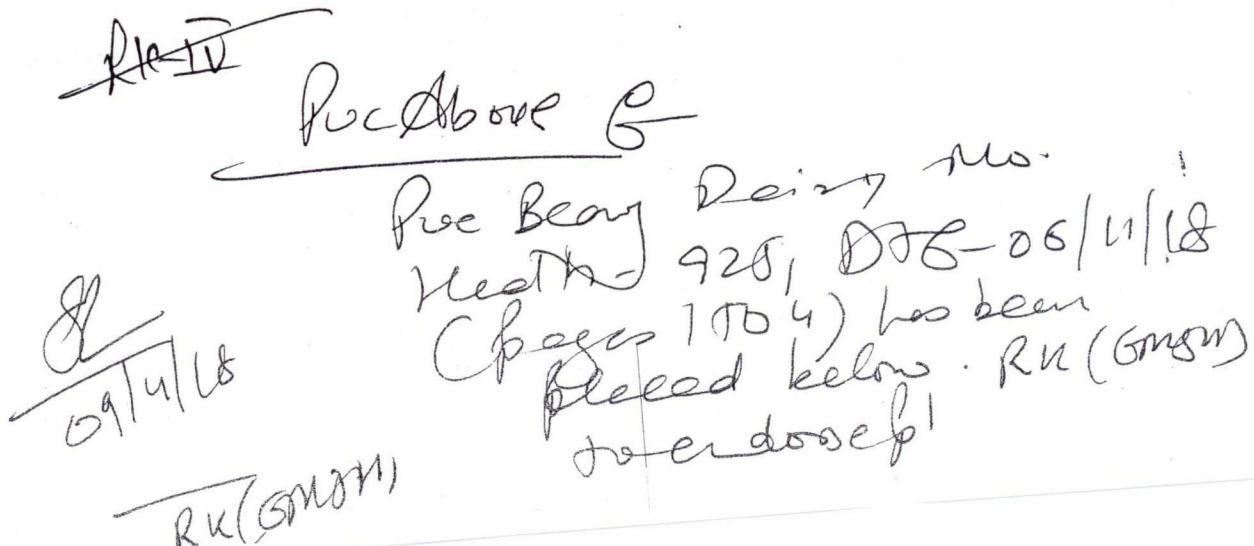 RK-IV
Puc Above
Puc Bearing Dairy No.
Health- 925, DTE- 06/11/18
(pages 1 TO 4) has been
placed below. RK (GMSH)
to endorse pl
09/11/18
RK (GMSH)